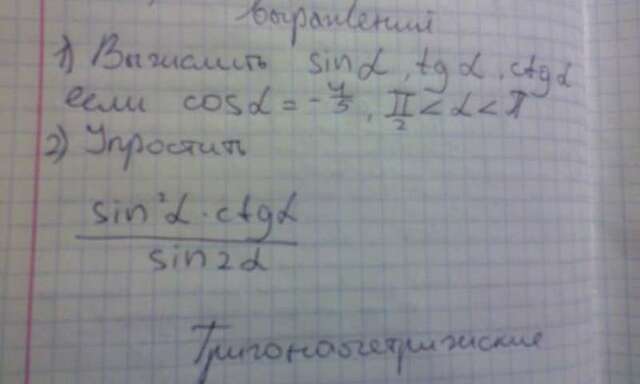 выражений
1) Вычислить sin α, tg α, ctg α
если cos α = -4/5, π/2 < α < π
2) Упростить
sin²α · ctg α
sin 2 α
Тригонометрические